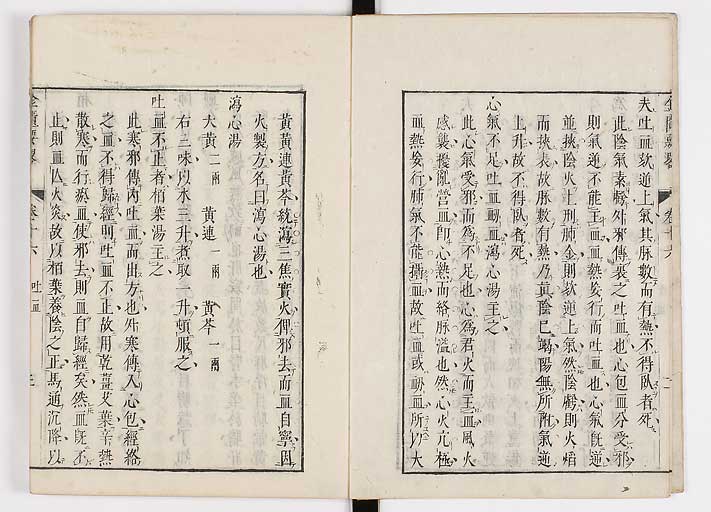 夫吐血欬逆上氣其脉數而有熱不得臥者死
此陰氣素虧外邪傳裏之吐血也心包血分受邪
則氣逆不能主血血熱妄行而吐血也心氣旣逆
並挾陰火上刑肺金則欬逆上氣然陰虧則火熖
而挾表故脉數有熱乃眞陰已竭陽無所附氣逆
上升故不得臥者死
心氣不足吐血衄血瀉心湯主之
此心氣受邪而為不足也心為君火而主血風火
感襲擾亂營血卽心熱而絡脉溢也然心火亢極
血熱妄行肺氣不能攝血故吐血或衄血所以大
黃黃連黃芩統瀉三焦實火俾邪去而血自寧因
火製方名曰瀉心湯也
瀉心湯
大黃二兩 黃連一兩 黃芩一兩
右三味以水三升煮取一升頓服之
吐血不止者栢葉湯主之
此寒邪傳內吐血而出方也外寒傳入心包經絡
之血不得歸經則吐血不止故用乾薑艾葉辛熱
散寒而行瘀血使邪去則血自歸經矣然血旣不
止則血虛火炎故以栢葉養陰之正馬通沉降以
金匱要畧 卷十六 吐血